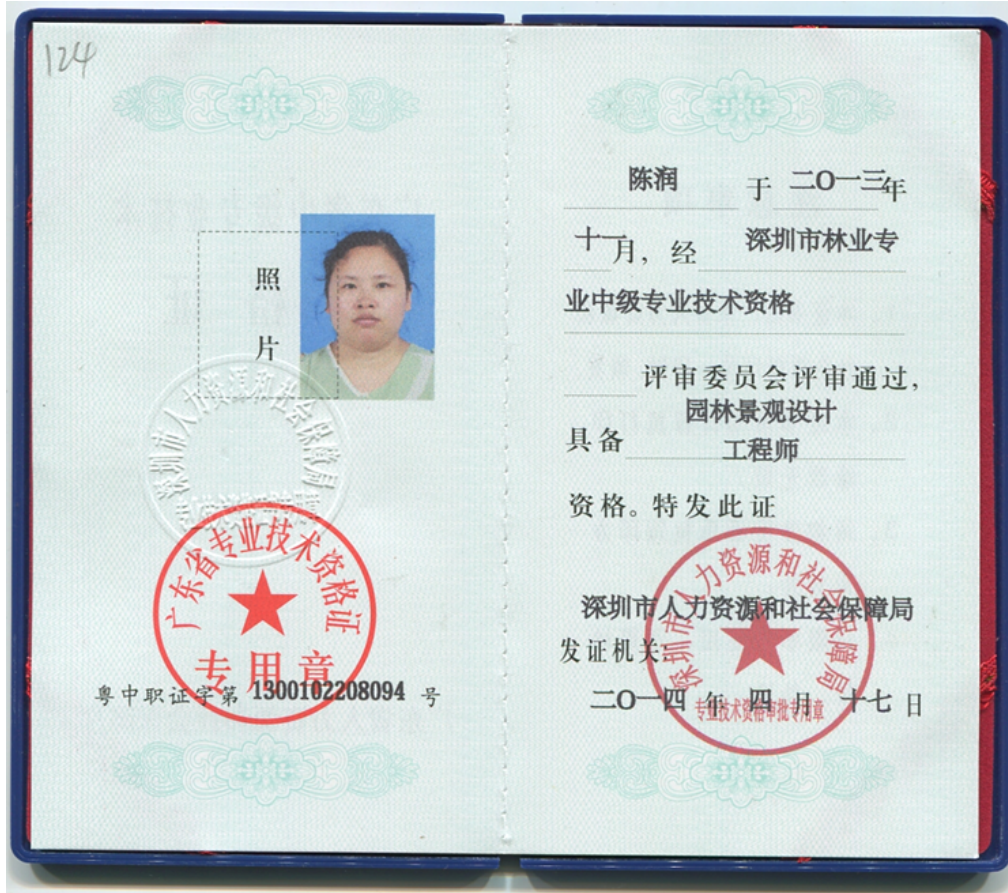 124
照
片
深圳市人力资源和社会保障局
广东省专业技术资格证
专用章
粤中职证字第 1300102208094 号
陈润 于 二O一三年
十一月，经 深圳市林业专
业中级专业技术资格
评审委员会评审通过，
园林景观设计
具备 工程师
资格。特发此证
深圳市人力资源和社会保障局
深圳市人力资源和社会保障局
发证机关：
二O一四 年 四 月 十七 日
专业技术资格审批专用章